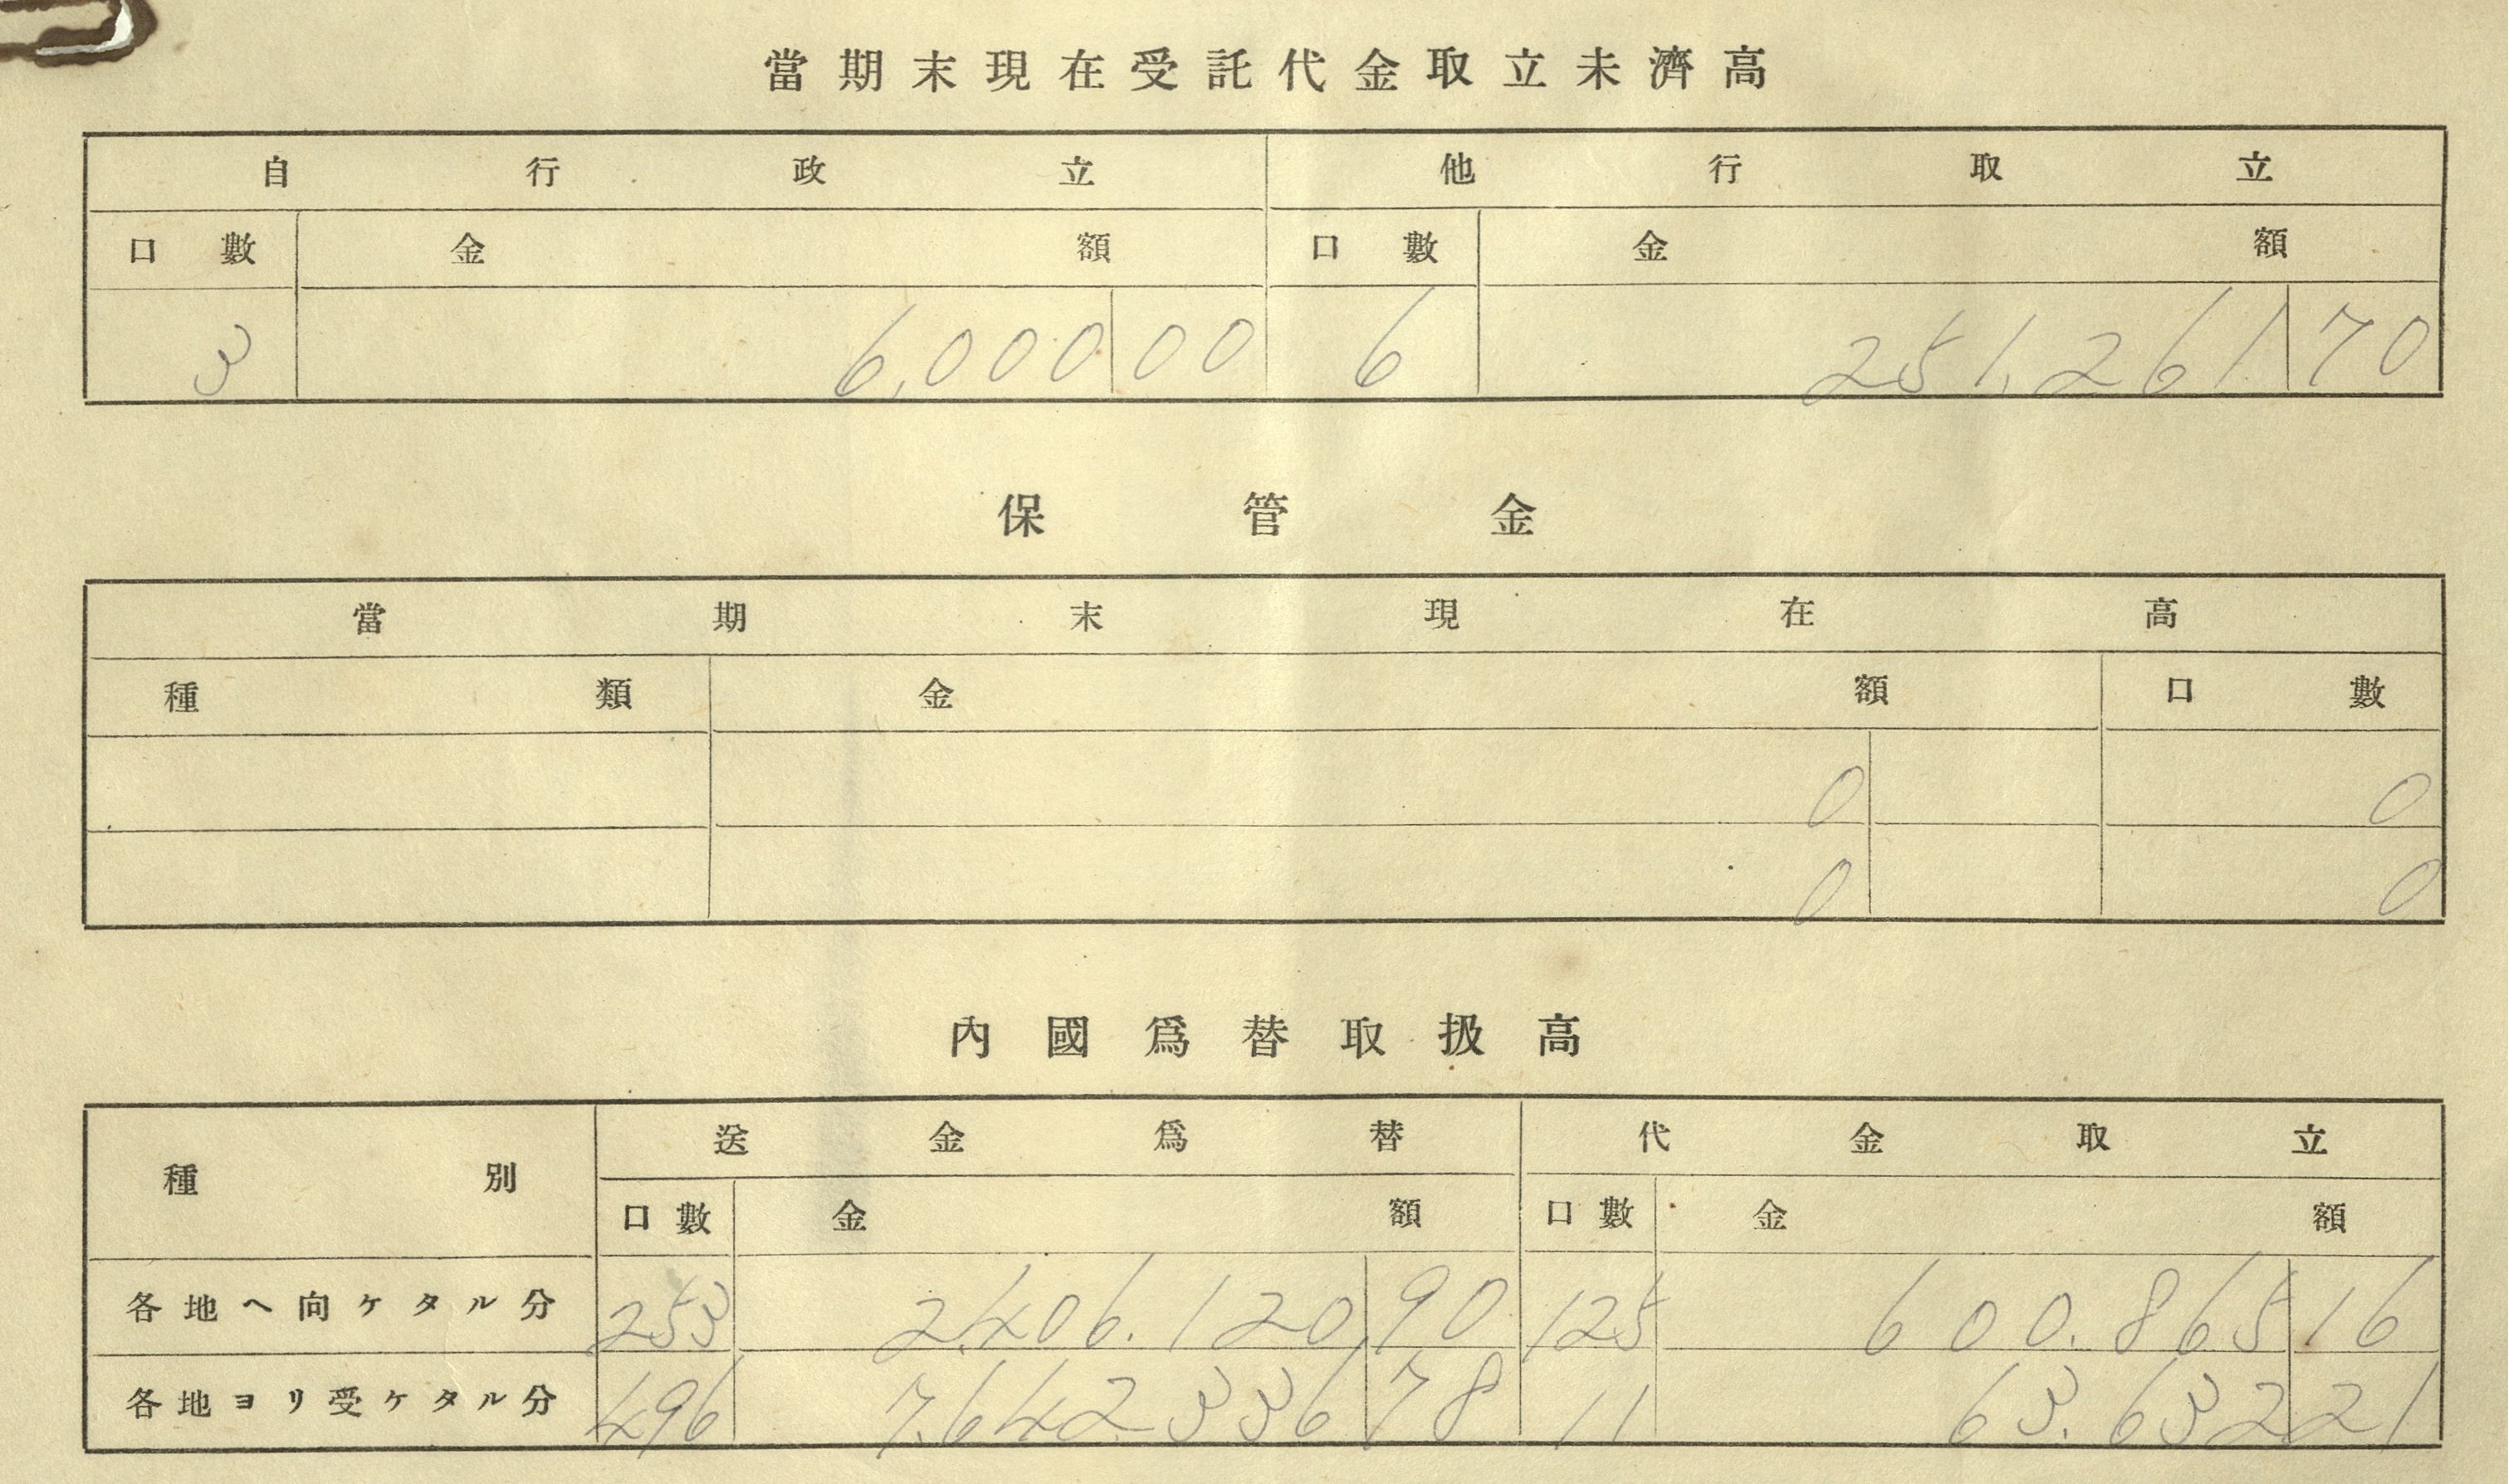 當期末現在受託代金取立未濟高
自行政立 他行取立
口數 金額 口數 金額
3 6,000 00 6 251,261 70
保管金
當期末現在高
種類 金額 口數
0 0
0 0
內國爲替取扱高
種別 送金爲替 代金取立
口數 金額 口數 金額
各地ヘ向ケタル分 253 2.406.120 90 125 600.865 16
各地ヨリ受ケタル分 496 7.642.336 78 11 63.632 21